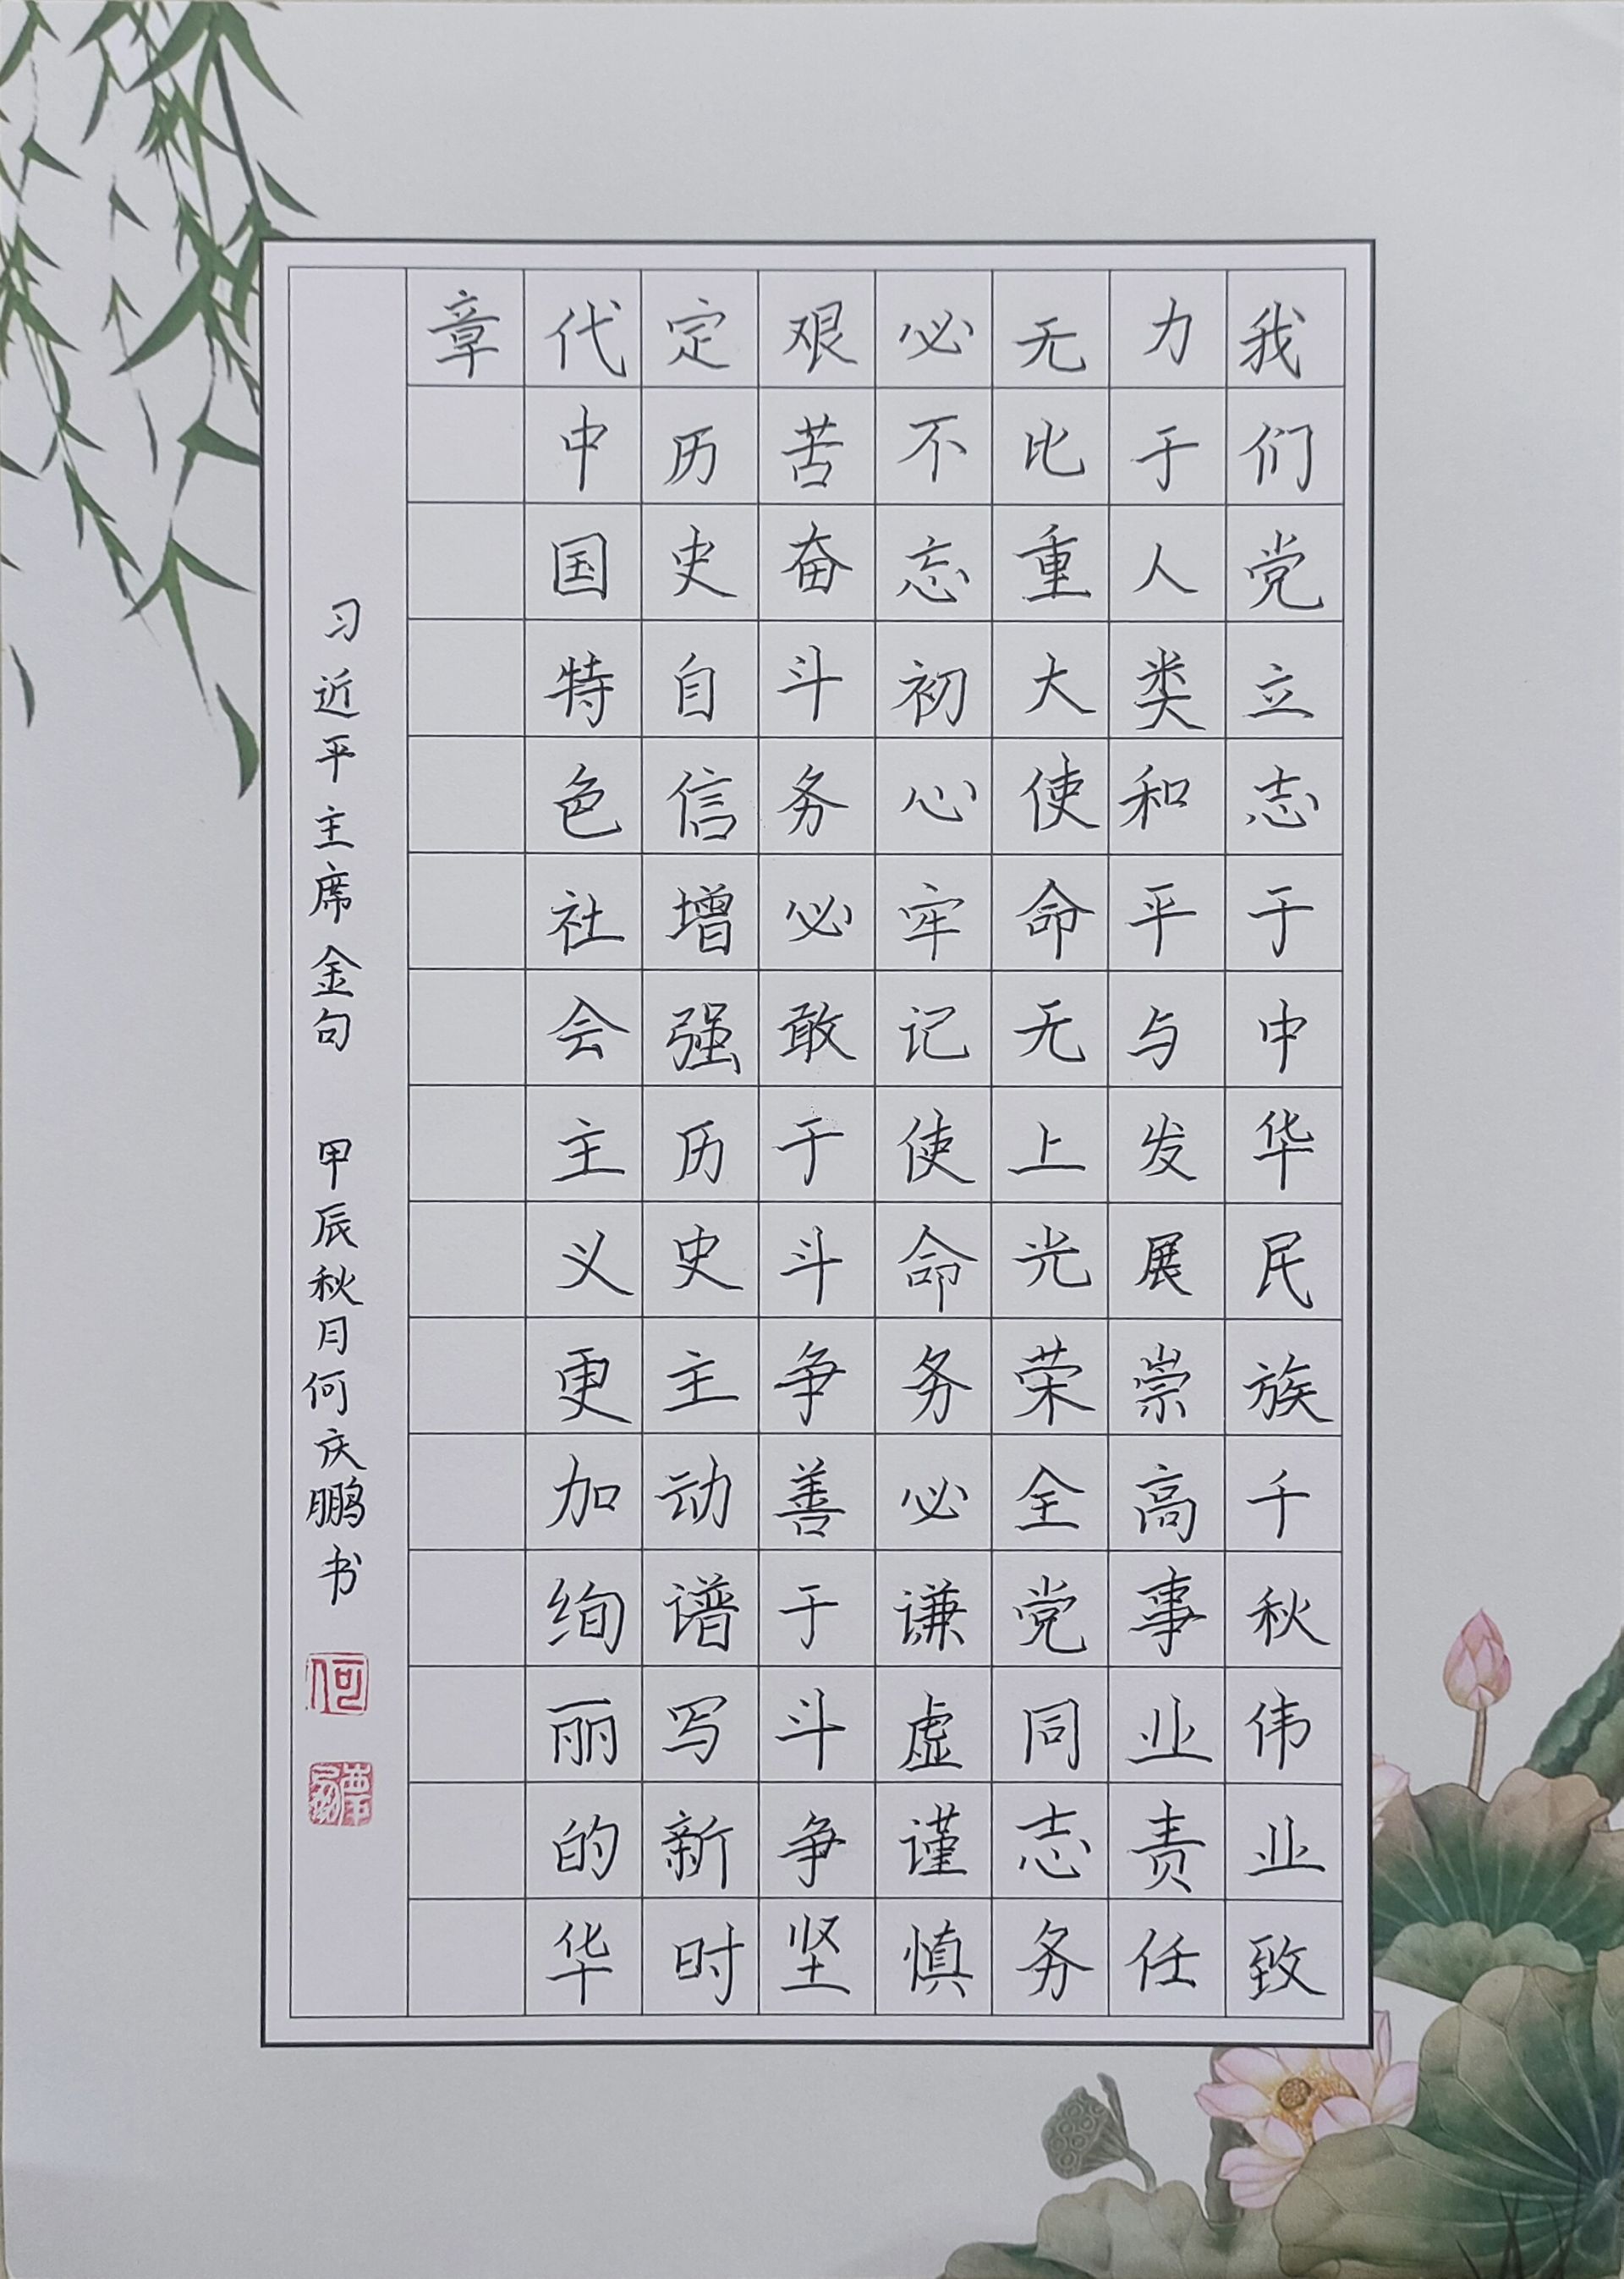 我们党立志于中华民族千秋伟业致
力于人类和平与发展崇高事业责任
无比重大使命无上光荣全党同志务
必不忘初心牢记使命务必谦虚谨慎
艰苦奋斗务必敢于斗争善于斗争坚
定历史自信增强历史主动谱写新时
代中国特色社会主义更加绚丽的华
章
习近平主席金句 甲辰秋月何庆鹏书
何